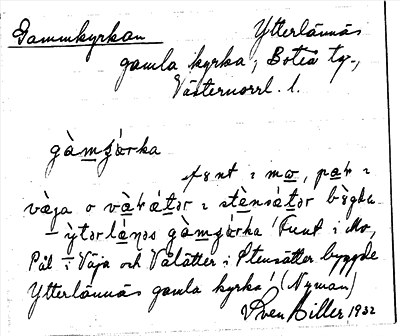 Gammkyrkan Ytterlännäs
gamla kyrka, Boteå tg.,
Västernorrl. l.
gàmʒárka
funt i mo, par i
väja o vàrátər i stènsátər bògda
- ỳtərlánəs gàmʒárka 'Funt i Mo,
Pål i Väja och Välätter i Stensätter byggde
Ytterlännäs gamla kyrka' (Nyman)
Sven Hiller 1932